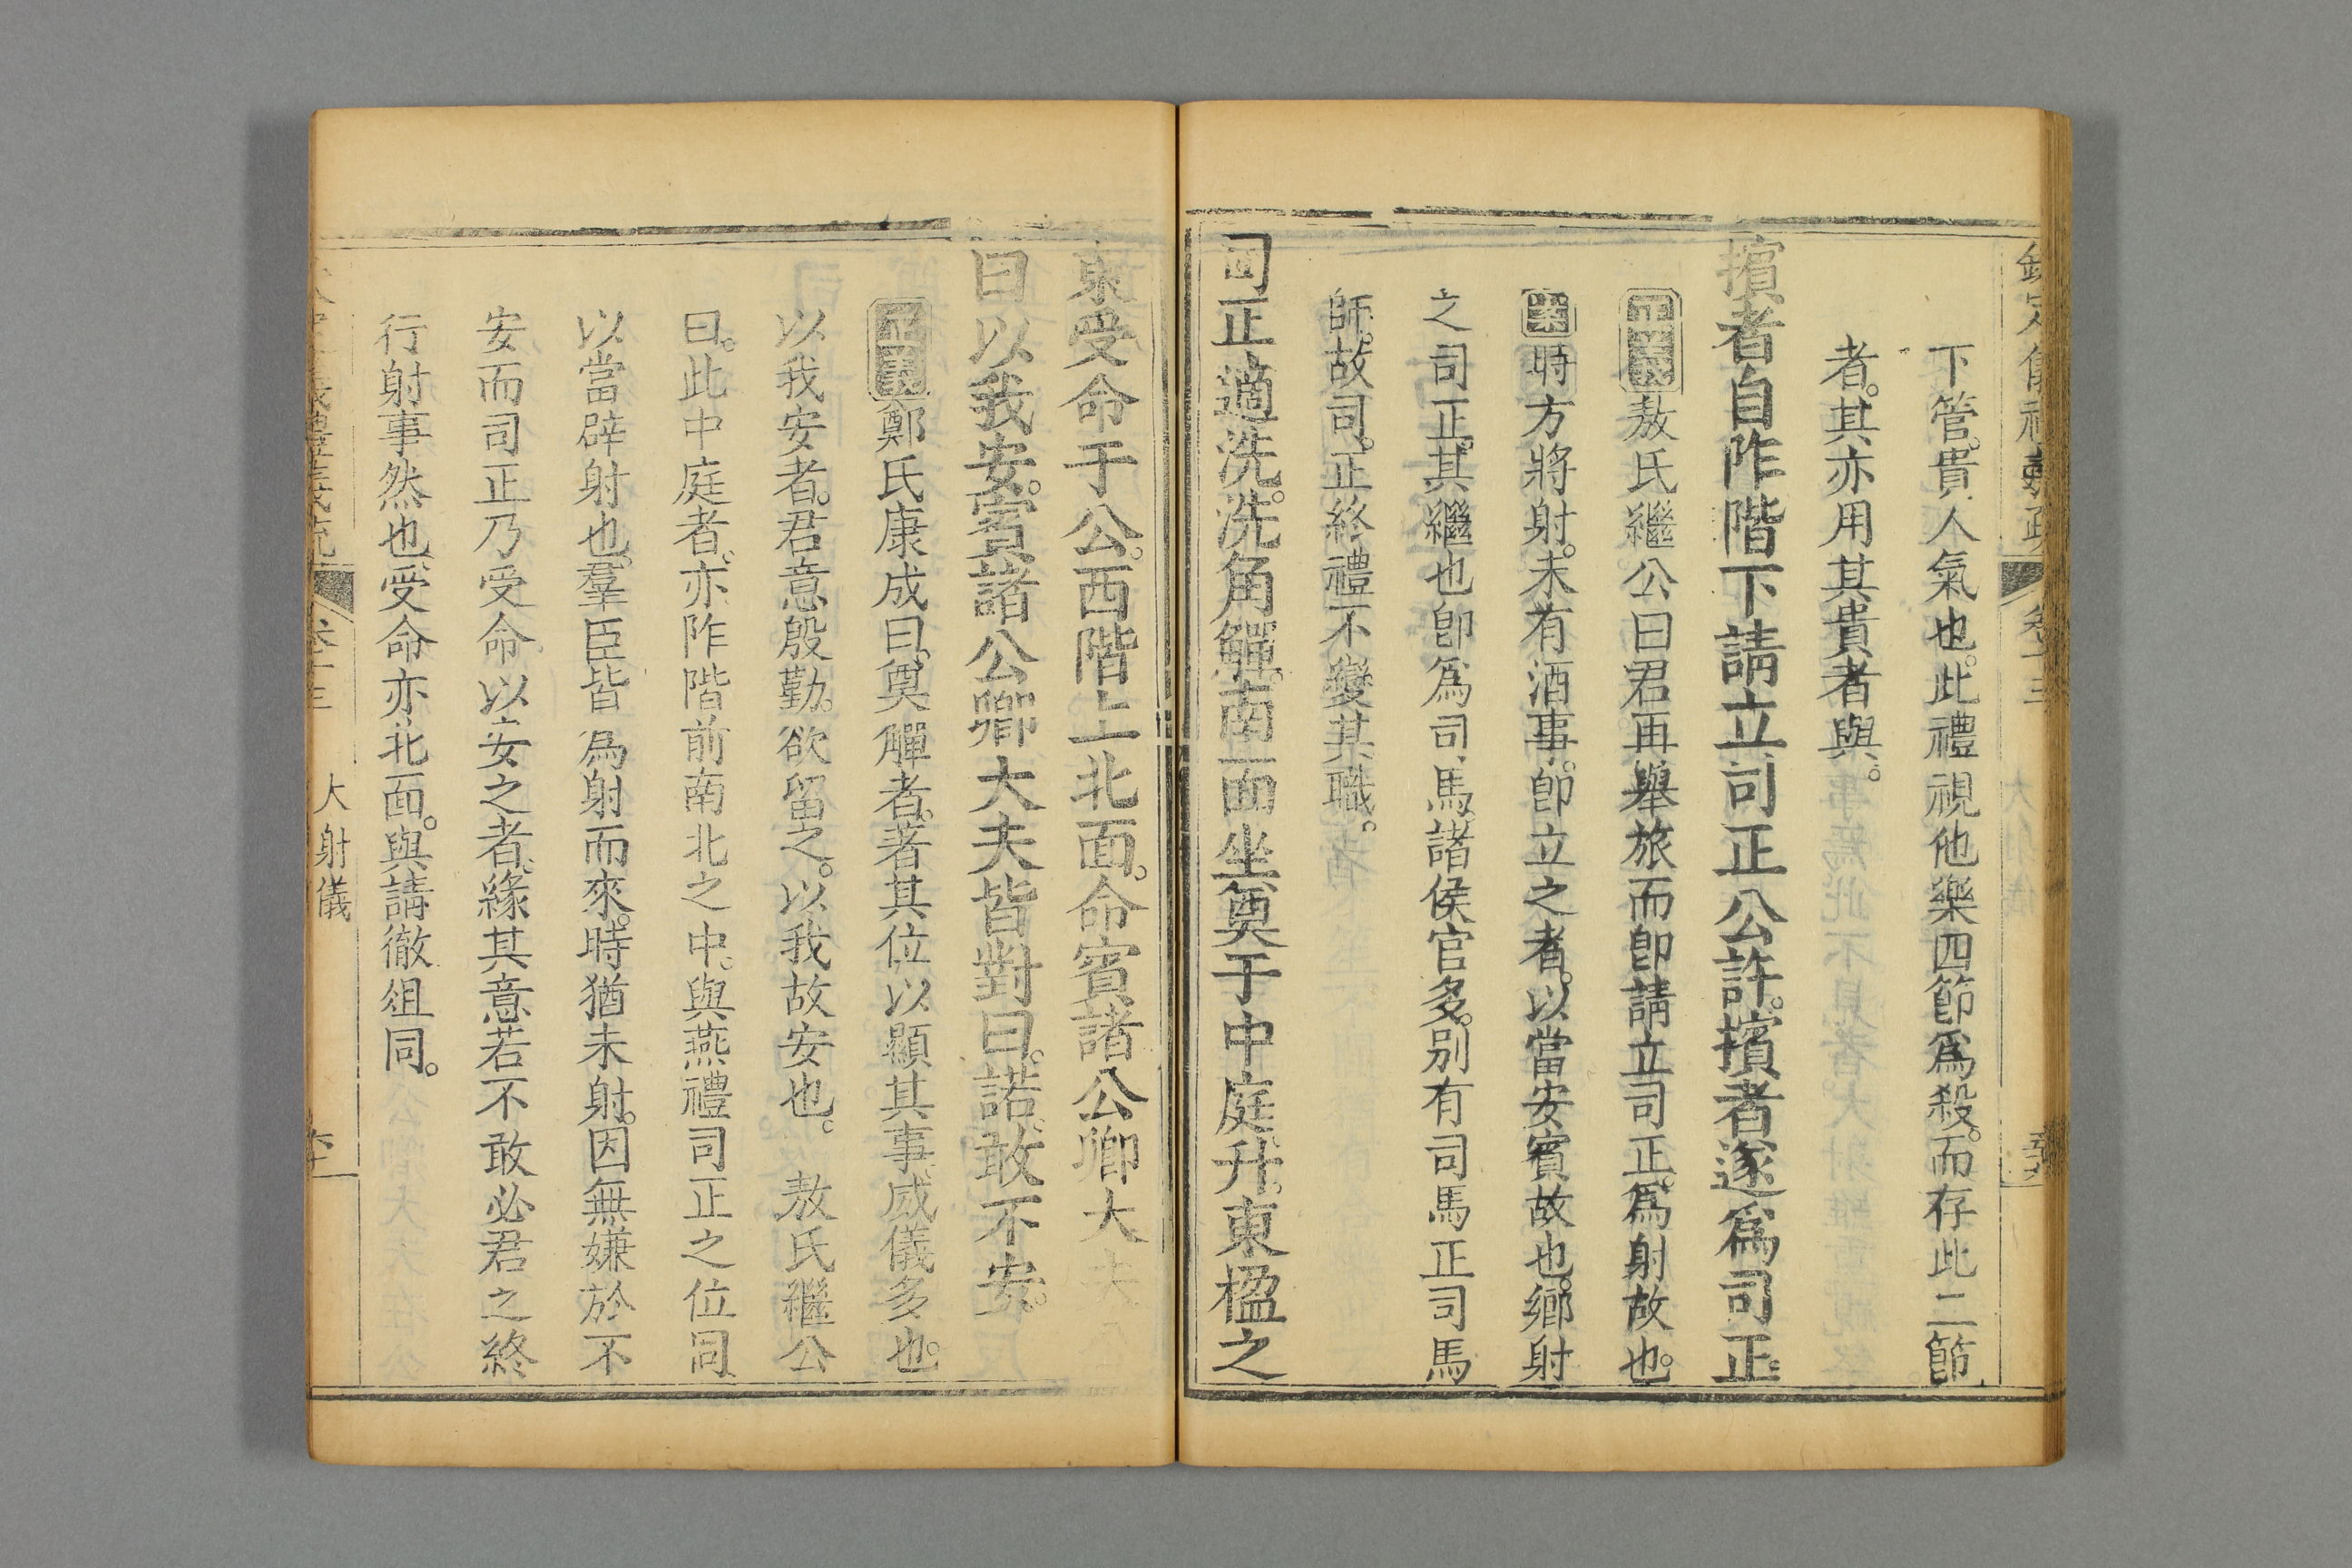 下管。貴人氣也。此禮視他樂四節爲殺。而存此二節
者。其亦用其貴者與。
擯者自阼階下請立司正公許。擯者遂爲司正。
正義敖氏繼公曰君再舉旅而卽請立司正。爲射故也。
案時方將射。未有酒事。卽立之者。以當安賓故也。鄉射
之司正。其繼也卽爲司馬。諸侯官多。別有司馬正司馬
師。故司。正終禮不變其職。
司正適洗。洗角觶。南面坐奠于中庭。升。東楹之
東受命于公。西階上北面。命賓諸公卿大夫
曰以我安。賓諸公卿大夫皆對曰。諾。敢不安。
正義鄭氏康成曰。奠觶者。著其位以顯其事。威儀多也。
以我安者。君意殷勤。欲留之。以我故安也。 敖氏繼公
曰。此中庭者。亦阼階前南北之中。與燕禮司正之位同
以當辟射也。羣臣皆爲射而來。時猶未射。因無嫌於不
安而司正乃受命。以安之者。緣其意若不敢必君之終
行射事然也。受命亦北面。與請徹俎同。
大射儀